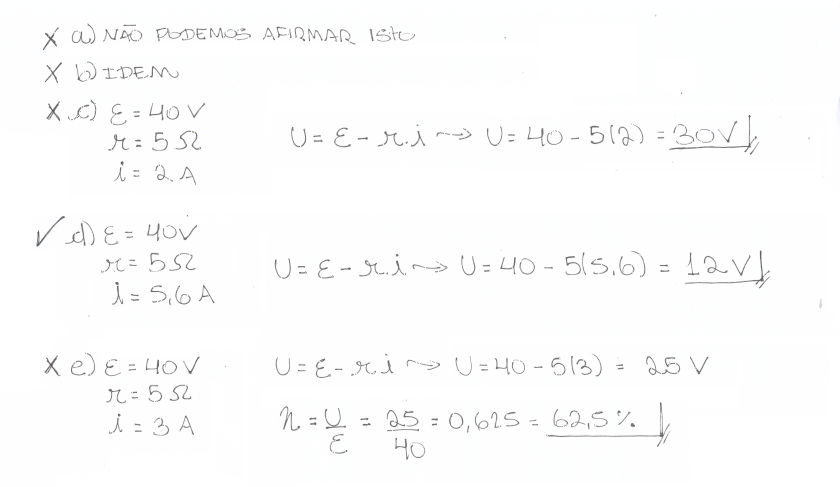 X a) NÃO PODEMOS AFIRMAR ISTO
X b) IDEM
X c) ε = 40 V
r = 5 Ω
i = 2 A
U = ε - r.i ⇝ U = 40 - 5(2) = 30V
✓ d) ε = 40V
r = 5 Ω
i = 5,6 A
U = ε - r.i ⇝ U = 40 - 5(5,6) = 12V
X e) ε = 40V
r = 5 Ω
i = 3 A
U = ε - r i ⇝ U = 40 - 5(3) = 25 V
η = U/ε = 25/40 = 0,625 = 62,5 %